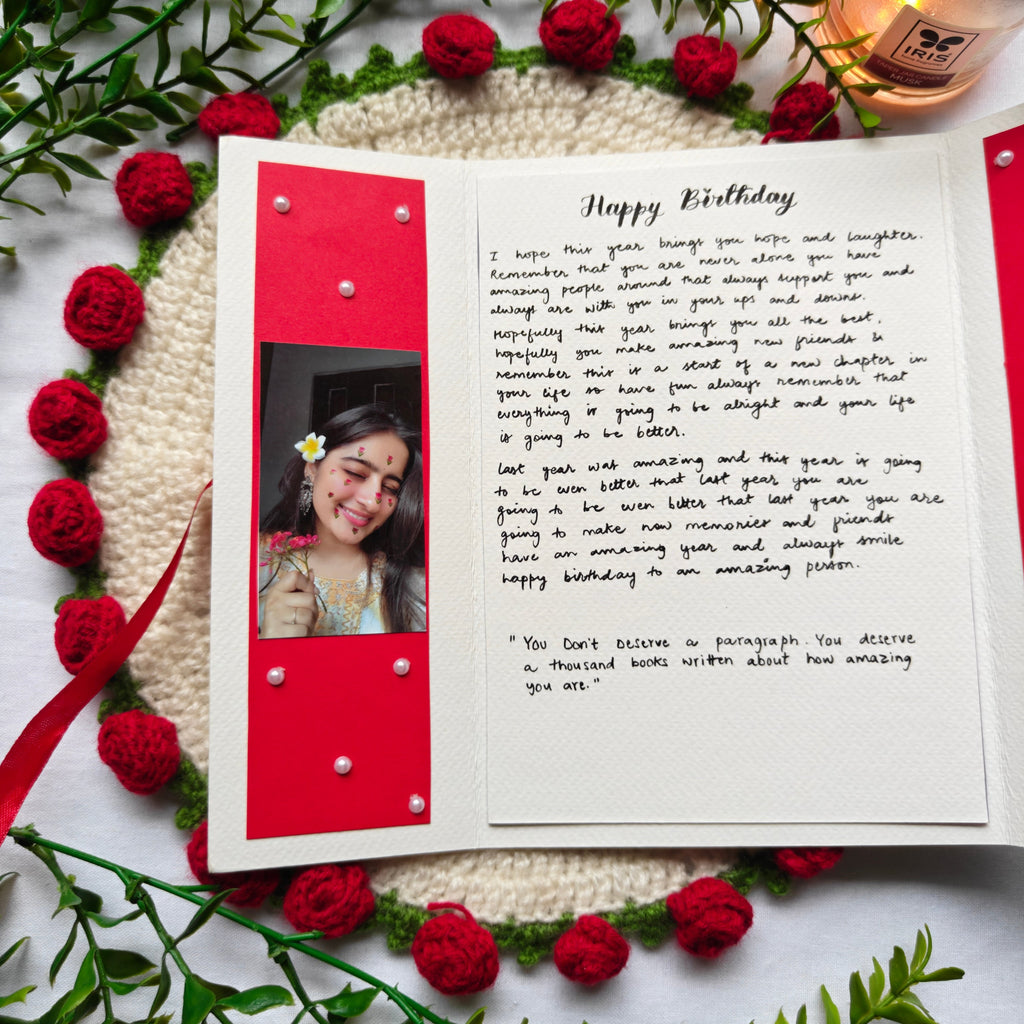 IRIS
MUSK
Happy Birthday
I hope this year brings you hope and laughter.
Remember that you are never alone you have
amazing people around that always support you and
always are with you in your ups and downs.
Hopefully this year brings you all the best,
hopefully you make amazing new friends &
remember this is a start of a new chapter in
your life so have fun always remember that
everything is going to be alright and your life
is going to be better.
Last year was amazing and this year is going
to be even better that last year you are
going to be even better that last year you are
going to make new memories and friends
have an amazing year and always smile
happy birthday to an amazing person.
" You Don't Deserve a paragraph. You deserve
a thousand books written about how amazing
you are."